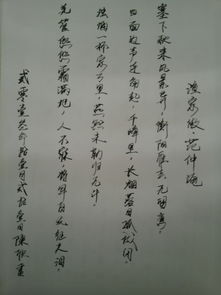 渔家傲·范仲淹
塞下秋来风景异，衡阳雁去无留意。
四面边声连角起，千嶂里，长烟落日孤城闭。
浊酒一杯家万里，燕然未勒归无计。
羌管悠悠霜满地，人不寐，将军白发征夫泪。
贰零壹 月贰拾壹日陈 书